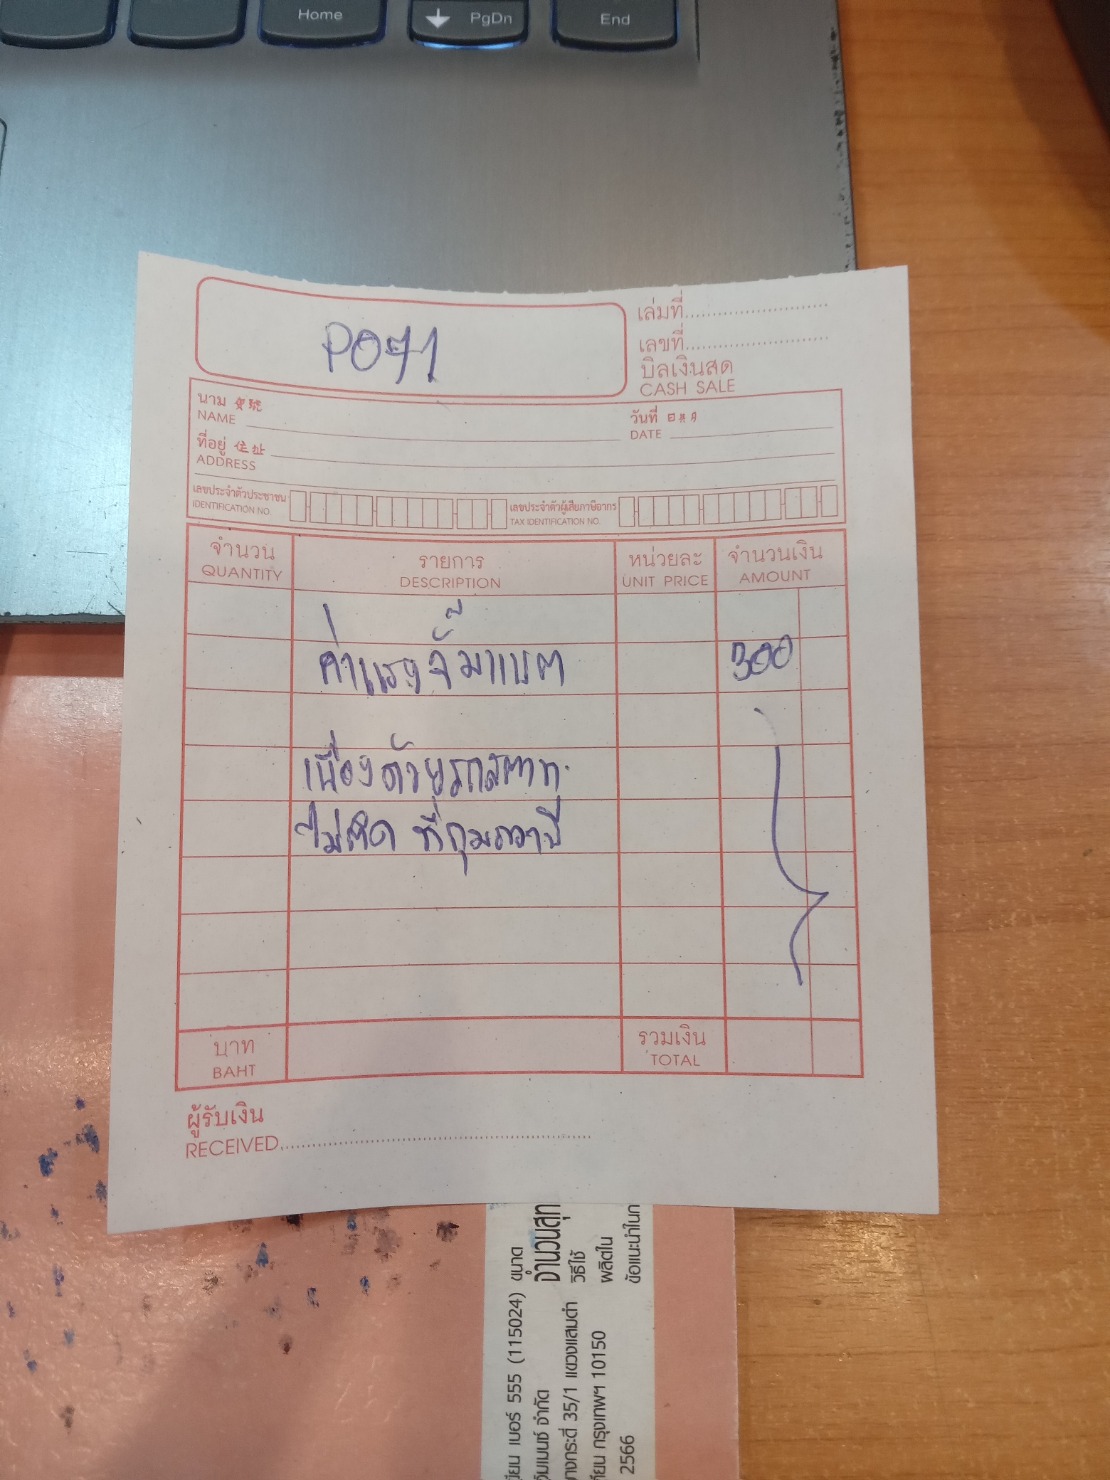 Home
PgDn
End
PO71
เล่มที่
เลขที่
บิลเงินสด
CASH SALE
นาม
NAME
วันที่
DATE
ที่อยู่ 住址
ADDRESS
เลขประจำตัวประชาชน
IDENTIFICATION NO.
เลขประจำตัวผู้เสียภาษีอากร
TAX IDENTIFICATION NO.
จำนวน รายการ หน่วยละ จำนวนเงิน
QUANTITY DESCRIPTION UNIT PRICE AMOUNT
ค่าแรงจั๊มแบต 300
เนื่องด้วยรถสตาท
ไม่ติด ที่กุมภวาปี
บาท
BAHT
รวมเงิน
TOTAL
ผู้รับเงิน
RECEIVED
เบอร์ 555 (115024) ขนาด
จำกัด จำนวนสุท
35/1 แขวงแสมดำ วิธีใช้
กรุงเทพฯ 10150 ผลิตใน
2566 ข้อแนะนำในก